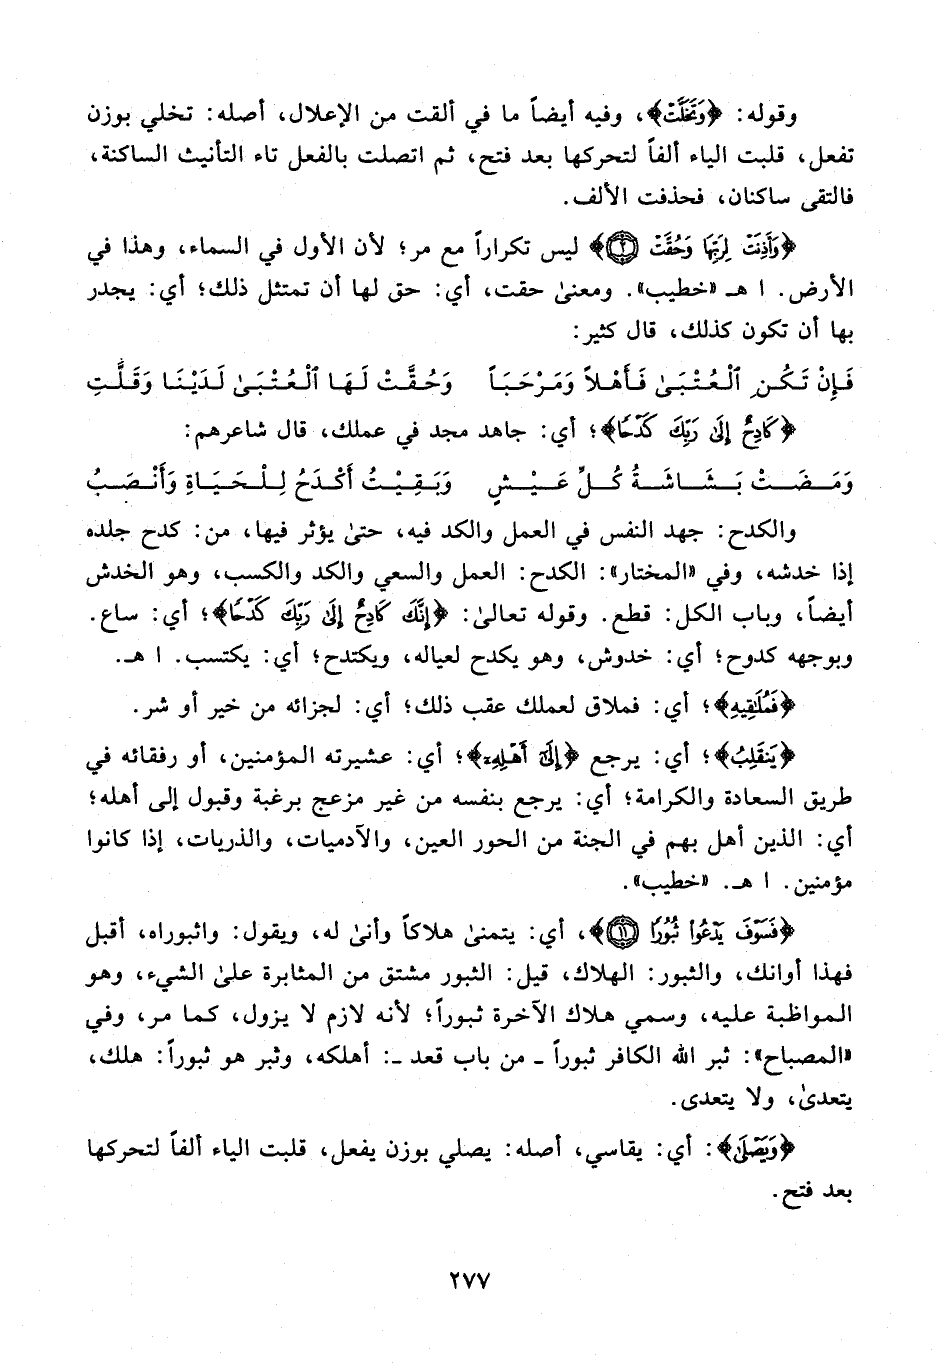 وقوله: ﴿وَتَخَلَّتْ﴾، وفيه أيضاً ما في ألقت من الإعلال، أصله: تخلي بوزن
تفعل، قلبت الياء ألفاً لتحركها بعد فتح، ثم اتصلت بالفعل تاء التأنيث الساكنة،
فالتقى ساكنان، فحذفت الألف.
﴿وَأَذِنَتْ لِرَبِّهَا وَحُقَّتْ ۝٢﴾ ليس تكراراً مع مر؛ لأن الأول في السماء، وهذا في
الأرض. ا هـ «خطيب». ومعنىٰ حقت، أي: حق لها أن تمتثل ذلك؛ أي: يجدر
بها أن تكون كذلك، قال كثير:
فَإِنْ تَكُنِ ٱلْعُتْبَىٰ فَأَهْلاً وَمَرْحَبَاً وَحُقَّتْ لَهَا ٱلْعُتْبَىٰ لَدَيْنَا وَقَلَّتِ
﴿كَادِحٌ إِلَىٰ رَبِّكَ كَدْحًا﴾؛ أي: جاهد مجد في عملك، قال شاعرهم:
وَمَضَتْ بَشَاشَةُ كُلِّ عَيْشٍ وَبَقِيْتُ أَكْدَحُ لِلْحَيَاةِ وَأَنْصَبُ
والكدح: جهد النفس في العمل والكد فيه، حتىٰ يؤثر فيها، من: كدح جلده
إذا خدشه، وفي «المختار»: الكدح: العمل والسعي والكد والكسب، وهو الخدش
أيضاً، وباب الكل: قطع. وقوله تعالىٰ: ﴿إِنَّكَ كَادِحٌ إِلَىٰ رَبِّكَ كَدْحًا﴾؛ أي: ساع.
وبوجهه كدوح؛ أي: خدوش، وهو يكدح لعياله، ويكتدح؛ أي: يكتسب. ا هـ.
﴿فَمُلَٰقِيهِ﴾؛ أي: فملاق لعملك عقب ذلك؛ أي: لجزائه من خير أو شر.
﴿يَنقَلِبُ﴾؛ أي: يرجع ﴿إِلَىٰٓ أَهْلِهِۦ﴾؛ أي: عشيرته المؤمنين، أو رفقائه في
طريق السعادة والكرامة؛ أي: يرجع بنفسه من غير مزعج برغبة وقبول إلى أهله؛
أي: الذين أهل بهم في الجنة من الحور العين، والآدميات، والذريات، إذا كانوا
مؤمنين. ا هـ. «خطيب».
﴿فَسَوْفَ يَدْعُوا۟ ثُبُورًا ۝١١﴾، أي: يتمنىٰ هلاكاً وأنىٰ له، ويقول: واثبوراه، أقبل
فهذا أوانك، والثبور: الهلاك، قيل: الثبور مشتق من المثابرة علىٰ الشيء، وهو
المواظبة عليه، وسمي هلاك الآخرة ثبوراً؛ لأنه لازم لا يزول، كما مر، وفي
«المصباح»: ثبر الله الكافر ثبوراً - من باب قعد -: أهلكه، وثبر هو ثبوراً: هلك،
يتعدىٰ، ولا يتعدى.
﴿وَيَصْلَىٰ﴾: أي: يقاسي، أصله: يصلي بوزن يفعل، قلبت الياء ألفاً لتحركها
بعد فتح.
٢٧٧